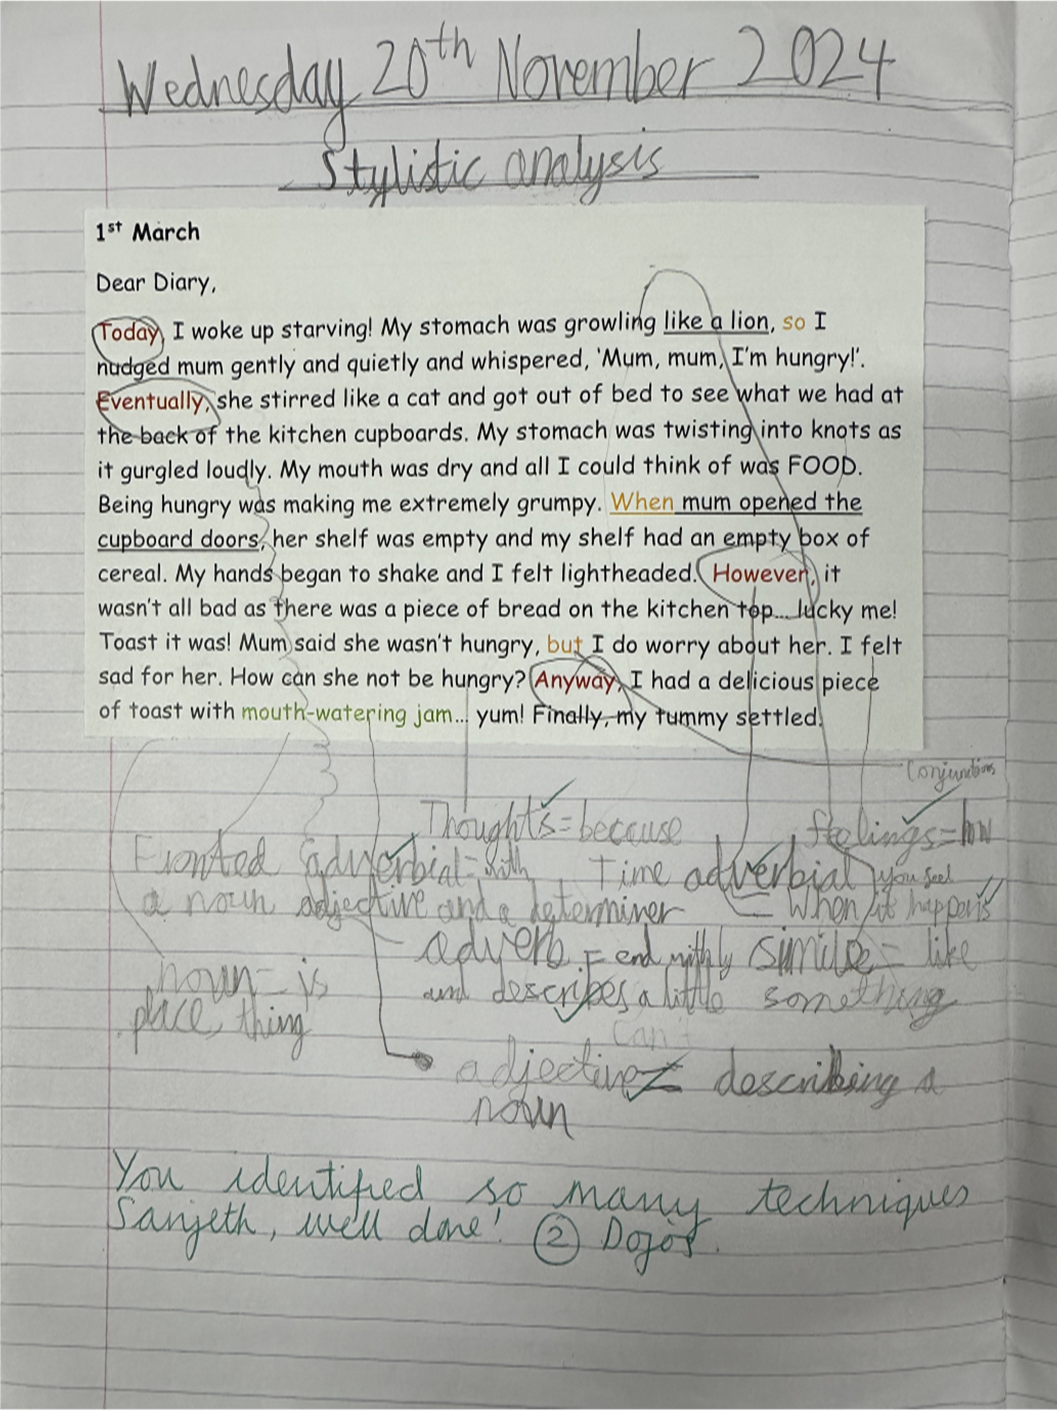 Wednesday 20th November 2024
Stylistic analysis
1st March
Dear Diary,
Today, I woke up starving! My stomach was growling like a lion, so I
nudged mum gently and quietly and whispered, 'Mum, mum, I'm hungry!'.
Eventually, she stirred like a cat and got out of bed to see what we had at
the back of the kitchen cupboards. My stomach was twisting into knots as
it gurgled loudly. My mouth was dry and all I could think of was FOOD.
Being hungry was making me extremely grumpy. When mum opened the
cupboard doors, her shelf was empty and my shelf had an empty box of
cereal. My hands began to shake and I felt lightheaded. However, it
wasn't all bad as there was a piece of bread on the kitchen top... lucky me!
Toast it was! Mum said she wasn't hungry, but I do worry about her. I felt
sad for her. How can she not be hungry? Anyway, I had a delicious piece
of toast with mouth-watering jam... yum! Finally, my tummy settled.
Conjunctions
Thoughts = because
feelings = how
you feel
Fronted adverbial = with
a noun adjective and a determiner
Time adverbial
When it happens
adverb = end with ly
and describes a little
simile = like
something
noun = is
place, thing
can't
adjective = describing a
noun
You identified so many techniques
Sanjeth, well done! 2 Dojos.